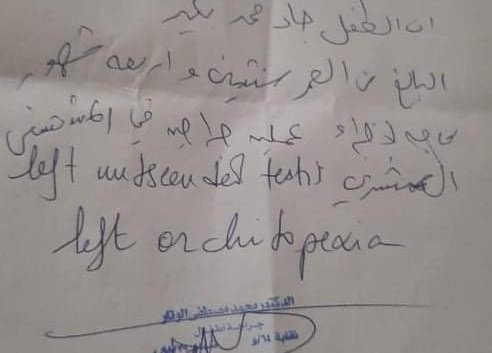 ان الطفل جاد محمد بكير
البالغ من العمر سنتين واربعة شهور
بحاجة لاجراء عملية جراحية في المستشفى
left undscended testis
left orchidopexia
الدكتور محمد مصطفى
جراحة اطفال
نقابة